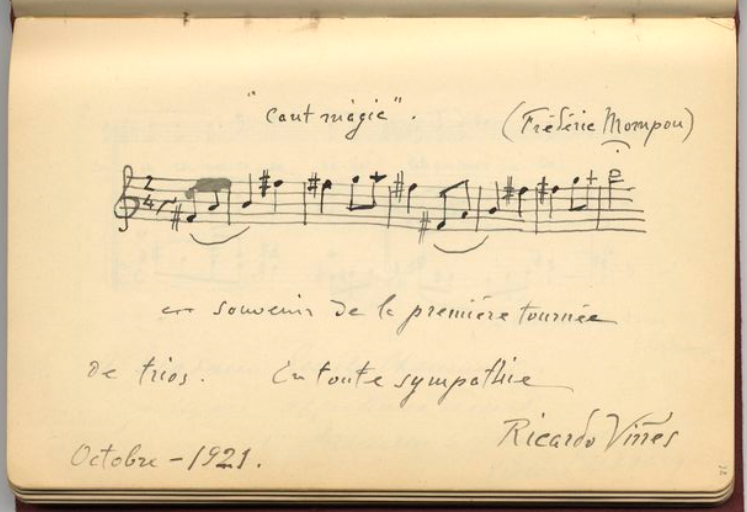 "Cant màgic".
(Frédéric Mompou)
2
4
en souvenir de la première tournée
de trios. En toute sympathie
Ricardo Viñes
Octobre - 1921.